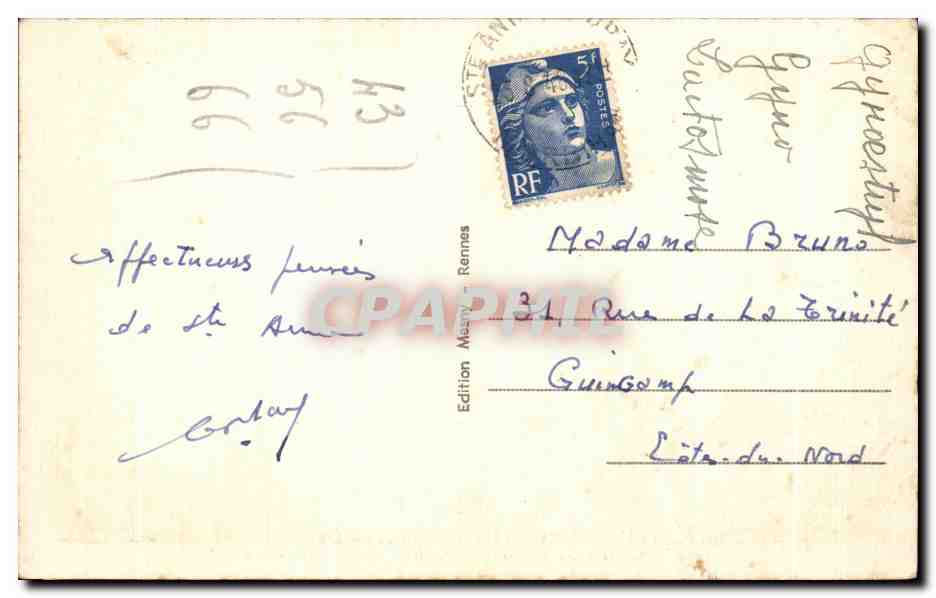 43
56
66
Affectueuses pensées
de Ste Anne
Edition Mesny - Rennes
STE ANNE
5F
POSTES
RF
Gyno
Madame Bruno
31, Rue de La Trinité
Guingamp
Côtes-du-Nord
CPAPHIL